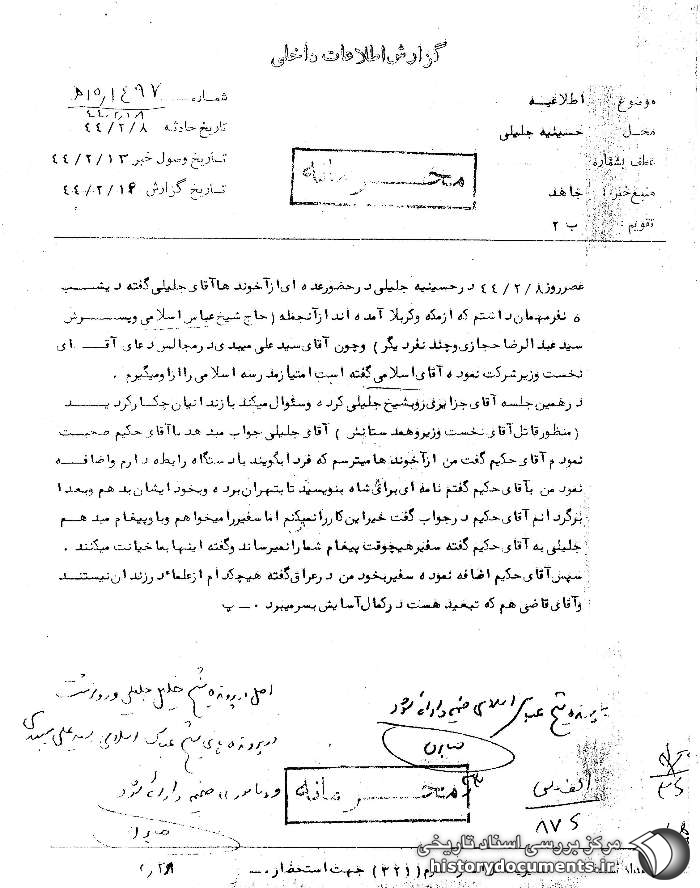 گزارش اطلاعات داخلی
موضوع : اطلاعیه
محل : حسینیه جلیلی
عطف بشماره
منبع خبر : جاهد
تقویم : ب ۲
شماره
تاریخ حادثه ۴۴/۲/۸
تاریخ وصول خبر ۴۴/۲/۱۳
تاریخ گزارش ۴۴/۲/۱۶
محرمانه
عصر روز ۴۴/۲/۸ در حسینیه جلیلی در حضور عده ای از آخوند ها آقای جلیلی گفته دیشب
۵ نفر مهمان داشتم که از مکه و کربلا آمده اند از آنجمله (حاج شیخ عباس اسلامی و پسرش
سید عبدالرضا حجازی و چند نفر دیگر) و چون آقای سید علی میبدی در مجالس دعای آقای
نخست وزیر شرکت نموده آقای اسلامی گفته است امتیاز مدرسه اسلامی را از او میگیرم .
در همین جلسه آقای جزایری رو بشیخ جلیلی کرده و سئوال میکند با زندانیان چکار کردید
(منظور قاتل آقای نخست وزیر و همدستانش) آقای جلیلی جواب میدهد با آقای حکیم صحبت
نمودم آقای حکیم گفت من از آخوند ها میترسم که فردا بگویند با دستگاه رابطه دارم و اضافه
نمود من بآقای حکیم گفتم نامه ای برای شاه بنویسید تا بتهران برده و بخود ایشان بدهم و بعد از
برگردانم آقای حکیم در جواب گفت خیر این کار را نمیکنم اما سفیر را میخواهم و باو پیغام میدهم
جلیلی به آقای حکیم گفته سفیر هیچوقت پیغام شما را نمیرساند و گفته اینها بما خیانت میکنند .
سپس آقای حکیم اضافه نموده سفیر بخود من در عراق گفته هیچکدام از علماء در زندان نیستند
و آقای قاضی هم که تبعید هست در کمال آسایش بسر میبرد . ـ پ
به پرونده شیخ عباس اسلامی ضمیمه و ارائه شود
اصل در پرونده شیخ جلیل جلیلی و رونوشت
در پرونده های شیخ عباس اسلامی و سید علی میبدی
ضمیمه و ارائه شود
محرمانه
الف
۸۷۶
(۳۲۱) جهت استحضار . ـ
مرکز بررسی اسناد تاریخی
historydocuments.ir